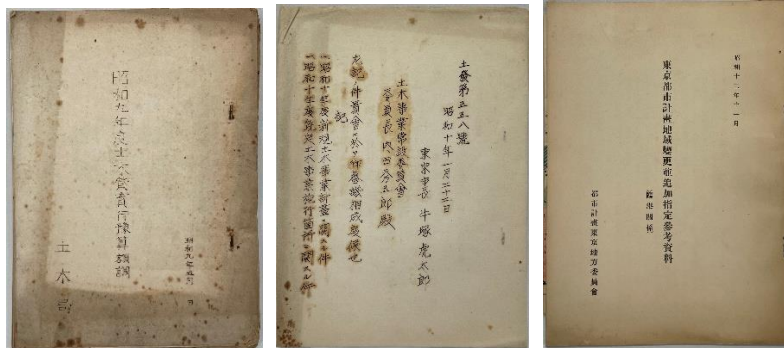 昭和九年度土木費實行豫算額調
昭和九年五月 日
土木局
土發第五五八號
昭和十年一月二十三日
東京市長 牛塚虎太郎
土木事業常設委員會
委員長 內田秀五郎殿
左記ノ件貴會ニ於テ御審議相成度候也
記
一、昭和十年度新規土木事業計畫ニ關スル件
一、昭和十年度既定土木事業施行箇所ニ關スル件
昭和十二年十一月
東京都市計畫地域變更並追加指定參考資料
臨港關係
都市計畫東京地方委員會